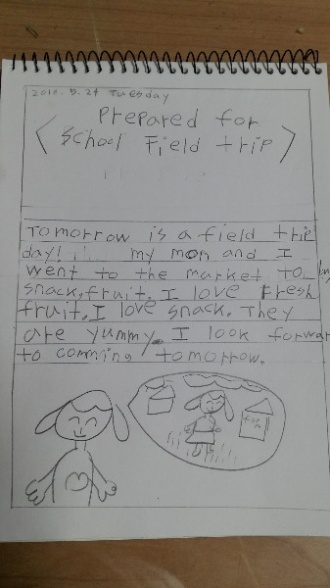 2016. 5. 24 Tuesday
Prepared for
< School Field trip >
Tomorrow is a field trip
day! my mom and I
went to the market to
snack, fruit. I love Fresh
fruit. I love snack. They
are yummy. I look forwar
to comming tomorrow.